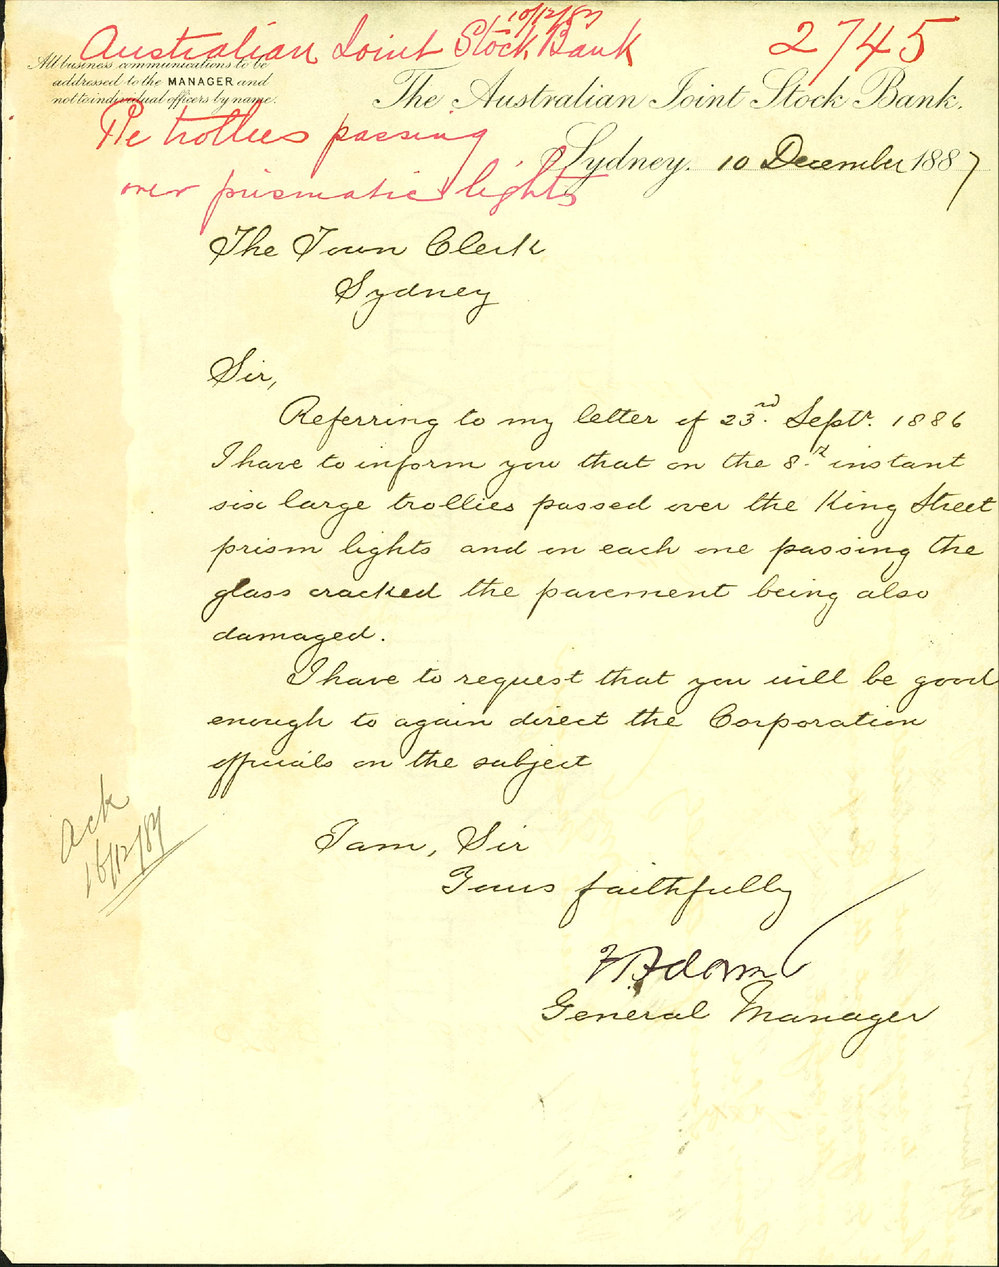 10/12/87
Australian Joint Stock Bank
2745
All business communications to be
addressed to the MANAGER and
not to individual officers by name.
The Australian Joint Stock Bank.
Re trollies passing
over prismatic lights
Sydney. 10 December 1887
The Town Clerk
Sydney
Sir,
Referring to my letter of 23rd. Septr. 1886
I have to inform you that on the 8th instant
six large trollies passed over the King Street
prism lights and on each one passing the
glass cracked the pavement being also
damaged.
I have to request that you will be good
enough to again direct the Corporation
officials on the subject
I am, Sir
Yours faithfully
Adams
General Manager
Ack
16/12/87